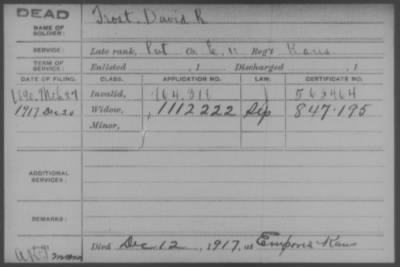 DEAD
NAME OF SOLDIER: Trost, David R
SERVICE: Late rank, Pvt Co. E. 11 Reg't Kans
TERM OF SERVICE: Enlisted , 1 Discharged , 1
DATE OF FILING. CLASS. APPLICATION NO. LAW. CERTIFICATE NO.
Invalid,
1917 Dec 20 Widow, 1112222 847.195
Minor,
ADDITIONAL SERVICES:
REMARKS:
Died Dec 12, 1917, at Emporia Kans